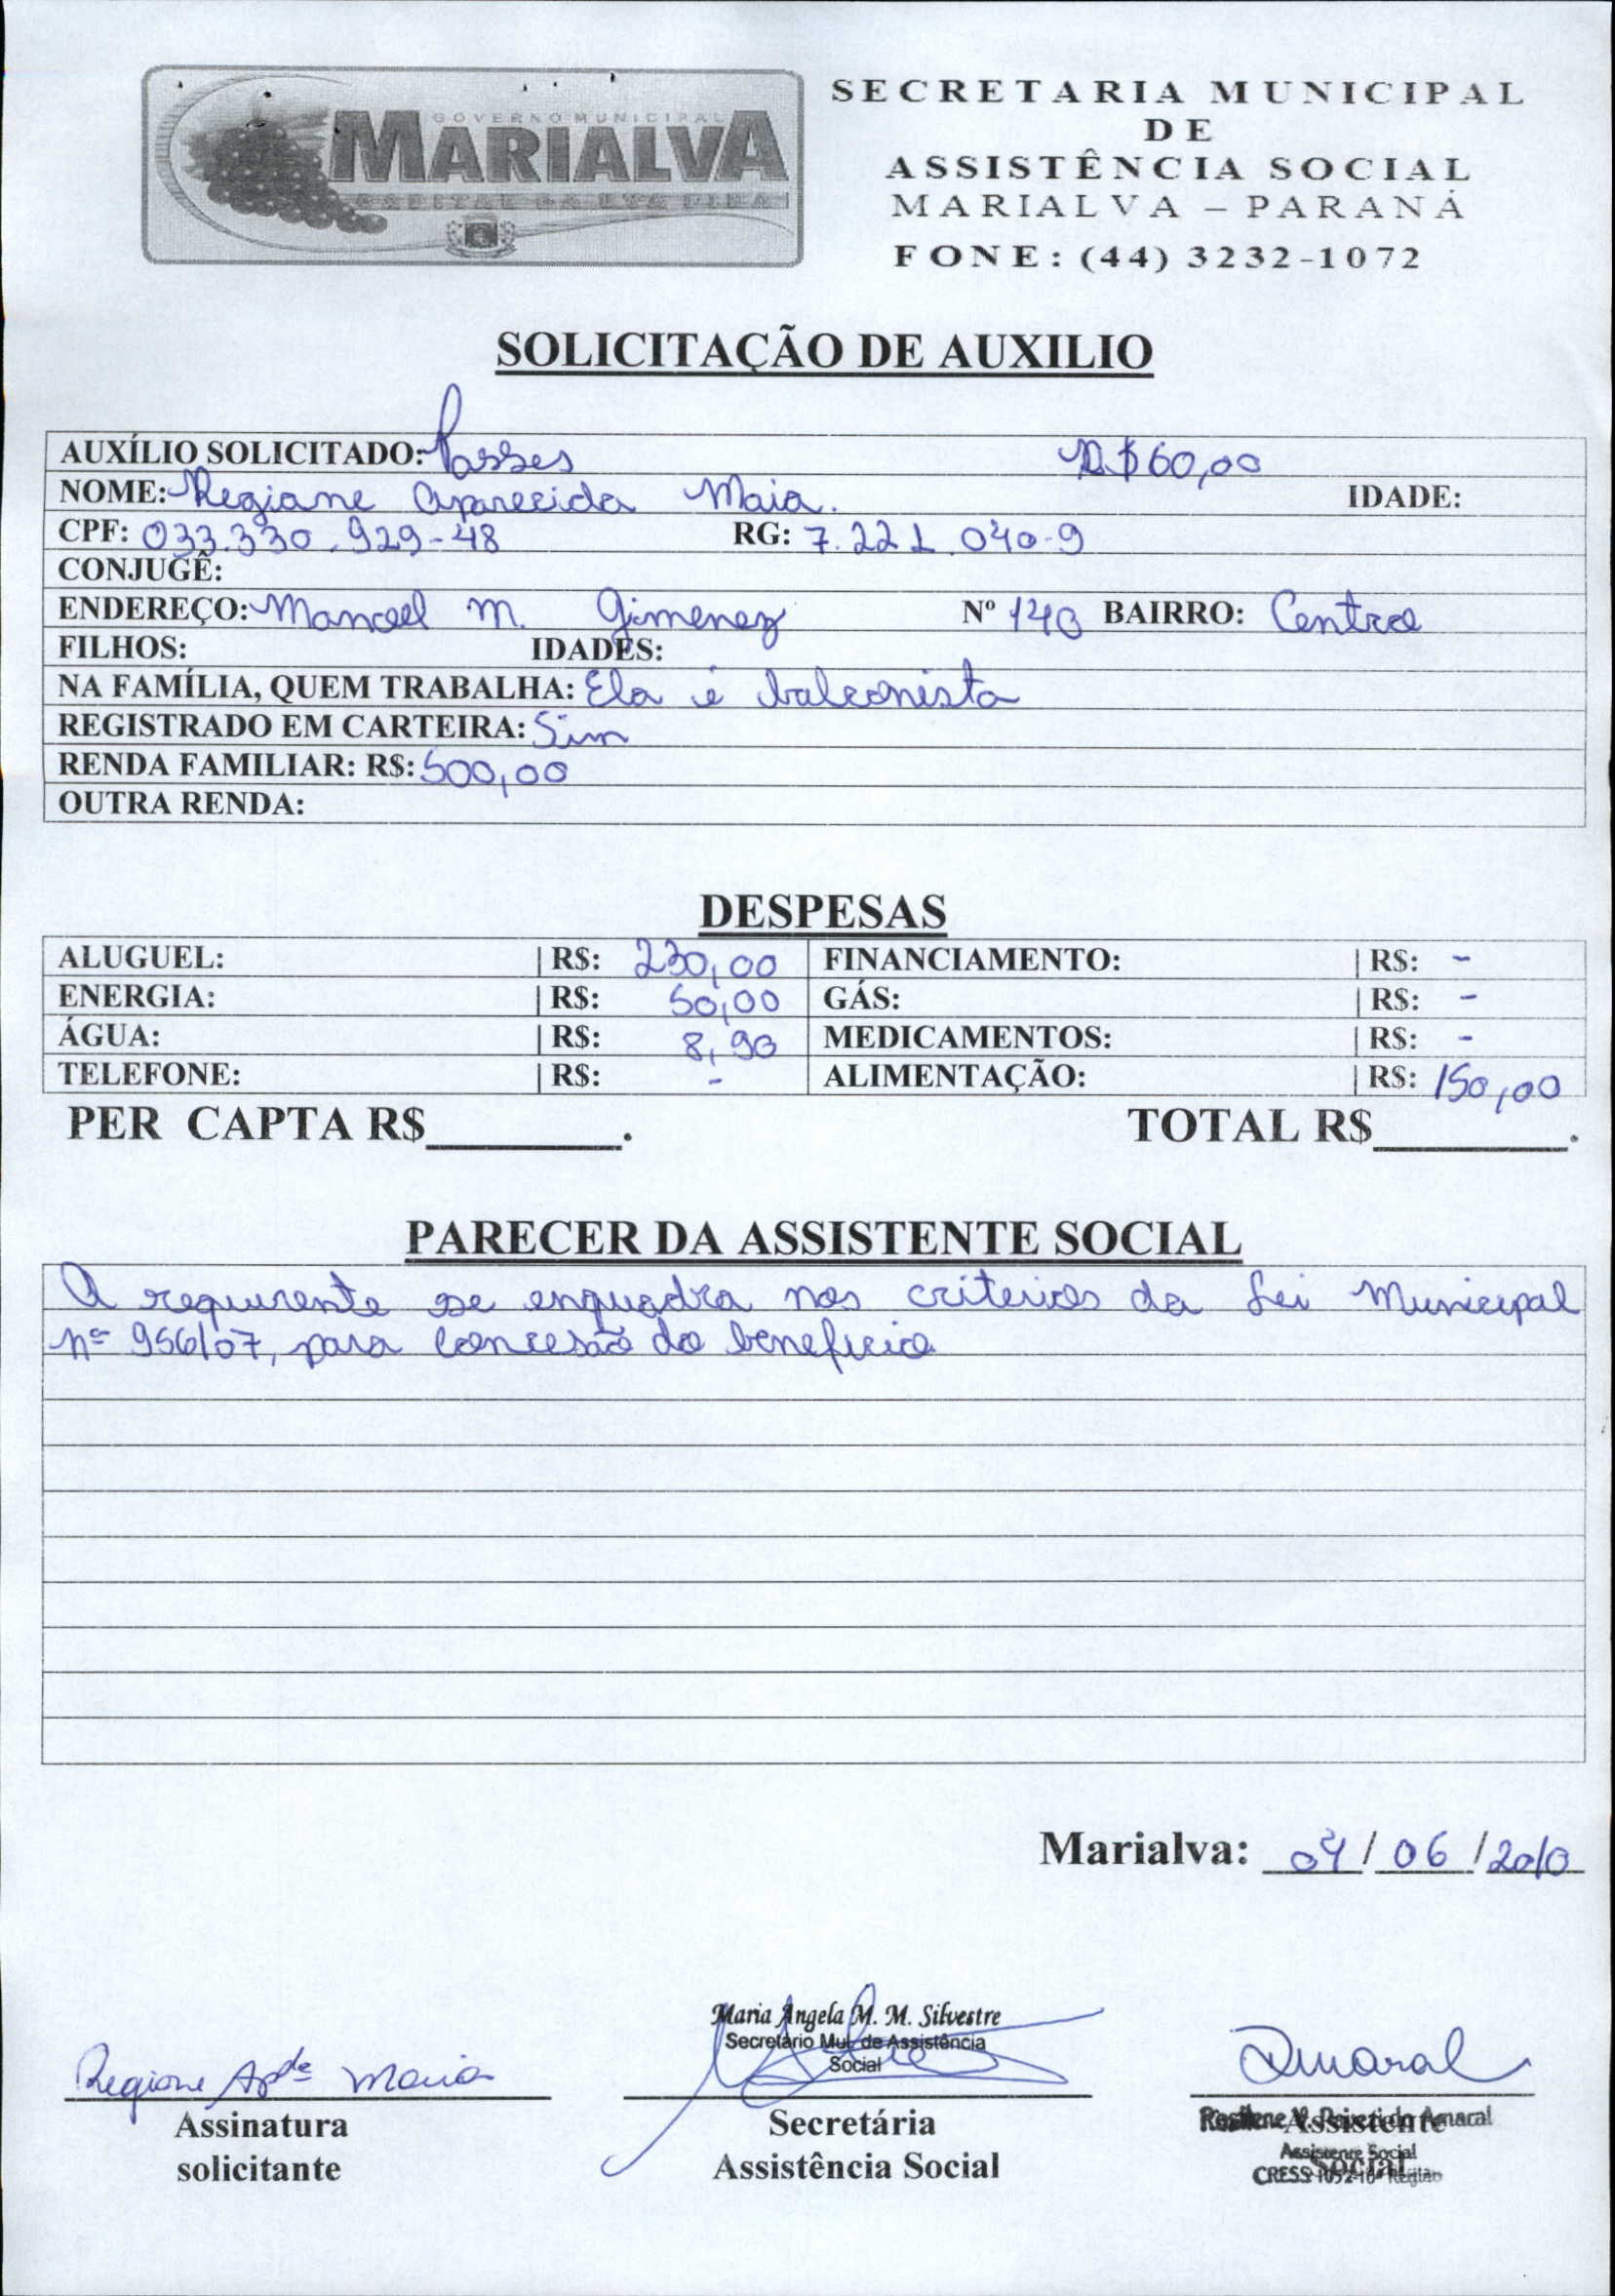 GOVERNO MUNICIPAL
MARIALVA
CAPITAL DA UVA FINA
SECRETARIA MUNICIPAL
DE
ASSISTÊNCIA SOCIAL
MARIALVA – PARANÁ
FONE: (44) 3232-1072
SOLICITAÇÃO DE AUXILIO
AUXÍLIO SOLICITADO: Passes R$ 60,00
NOME: Regiane Aparecida Maia. IDADE:
CPF: 033.330.929-48 RG: 7.221.040-9
CONJUGÊ:
ENDEREÇO: Manoel M. Gimenez Nº 140 BAIRRO: Centro
FILHOS: IDADES:
NA FAMÍLIA, QUEM TRABALHA: Ela é balconista
REGISTRADO EM CARTEIRA: Sim
RENDA FAMILIAR: R$: 500,00
OUTRA RENDA:
DESPESAS
ALUGUEL: R$: 230,00 FINANCIAMENTO: R$: -
ENERGIA: R$: 50,00 GÁS: R$: -
ÁGUA: R$: 8,90 MEDICAMENTOS: R$: -
TELEFONE: R$: - ALIMENTAÇÃO: R$: 150,00
PER CAPTA R$________. TOTAL R$________.
PARECER DA ASSISTENTE SOCIAL
A requerente se enquadra nos critérios da Lei Municipal
nº 956/07, para concesão do beneficio
Marialva: 04/06/2010
Maria Angela M. M. Silvestre
Secretário Mul. de Assistência
Social
Regiane Apda Maia
Amaral
Assinatura
solicitante
Secretária
Assistência Social
Assistente
Social
Amaral
Assistente Social
CRESS